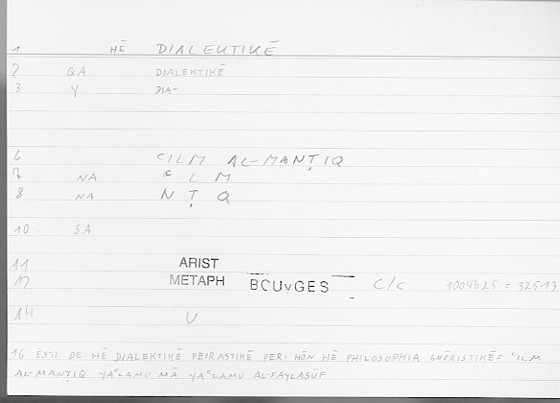 1 HĒ DIALEKTIKĒ
2 QA DIALEKTIKĒ
3 Y DIA-
6 CILM AL-MANṬIQ
7 NA C L M
8 NA N Ṭ Q
10 SA
11 ARIST
17 METAPH BOUvGES C/C 1004b25 = 32513
14 U
16 ESTI DE HĒ DIALEKTIKĒ PEIRASTIKĒ PERI HŌN HĒ PHILOSOPHIA GNŌRISTIKĒ = cILM
AL-MANṬIQ YAcLAMU MĀ YAcLAMU AL-FAYLASŪF